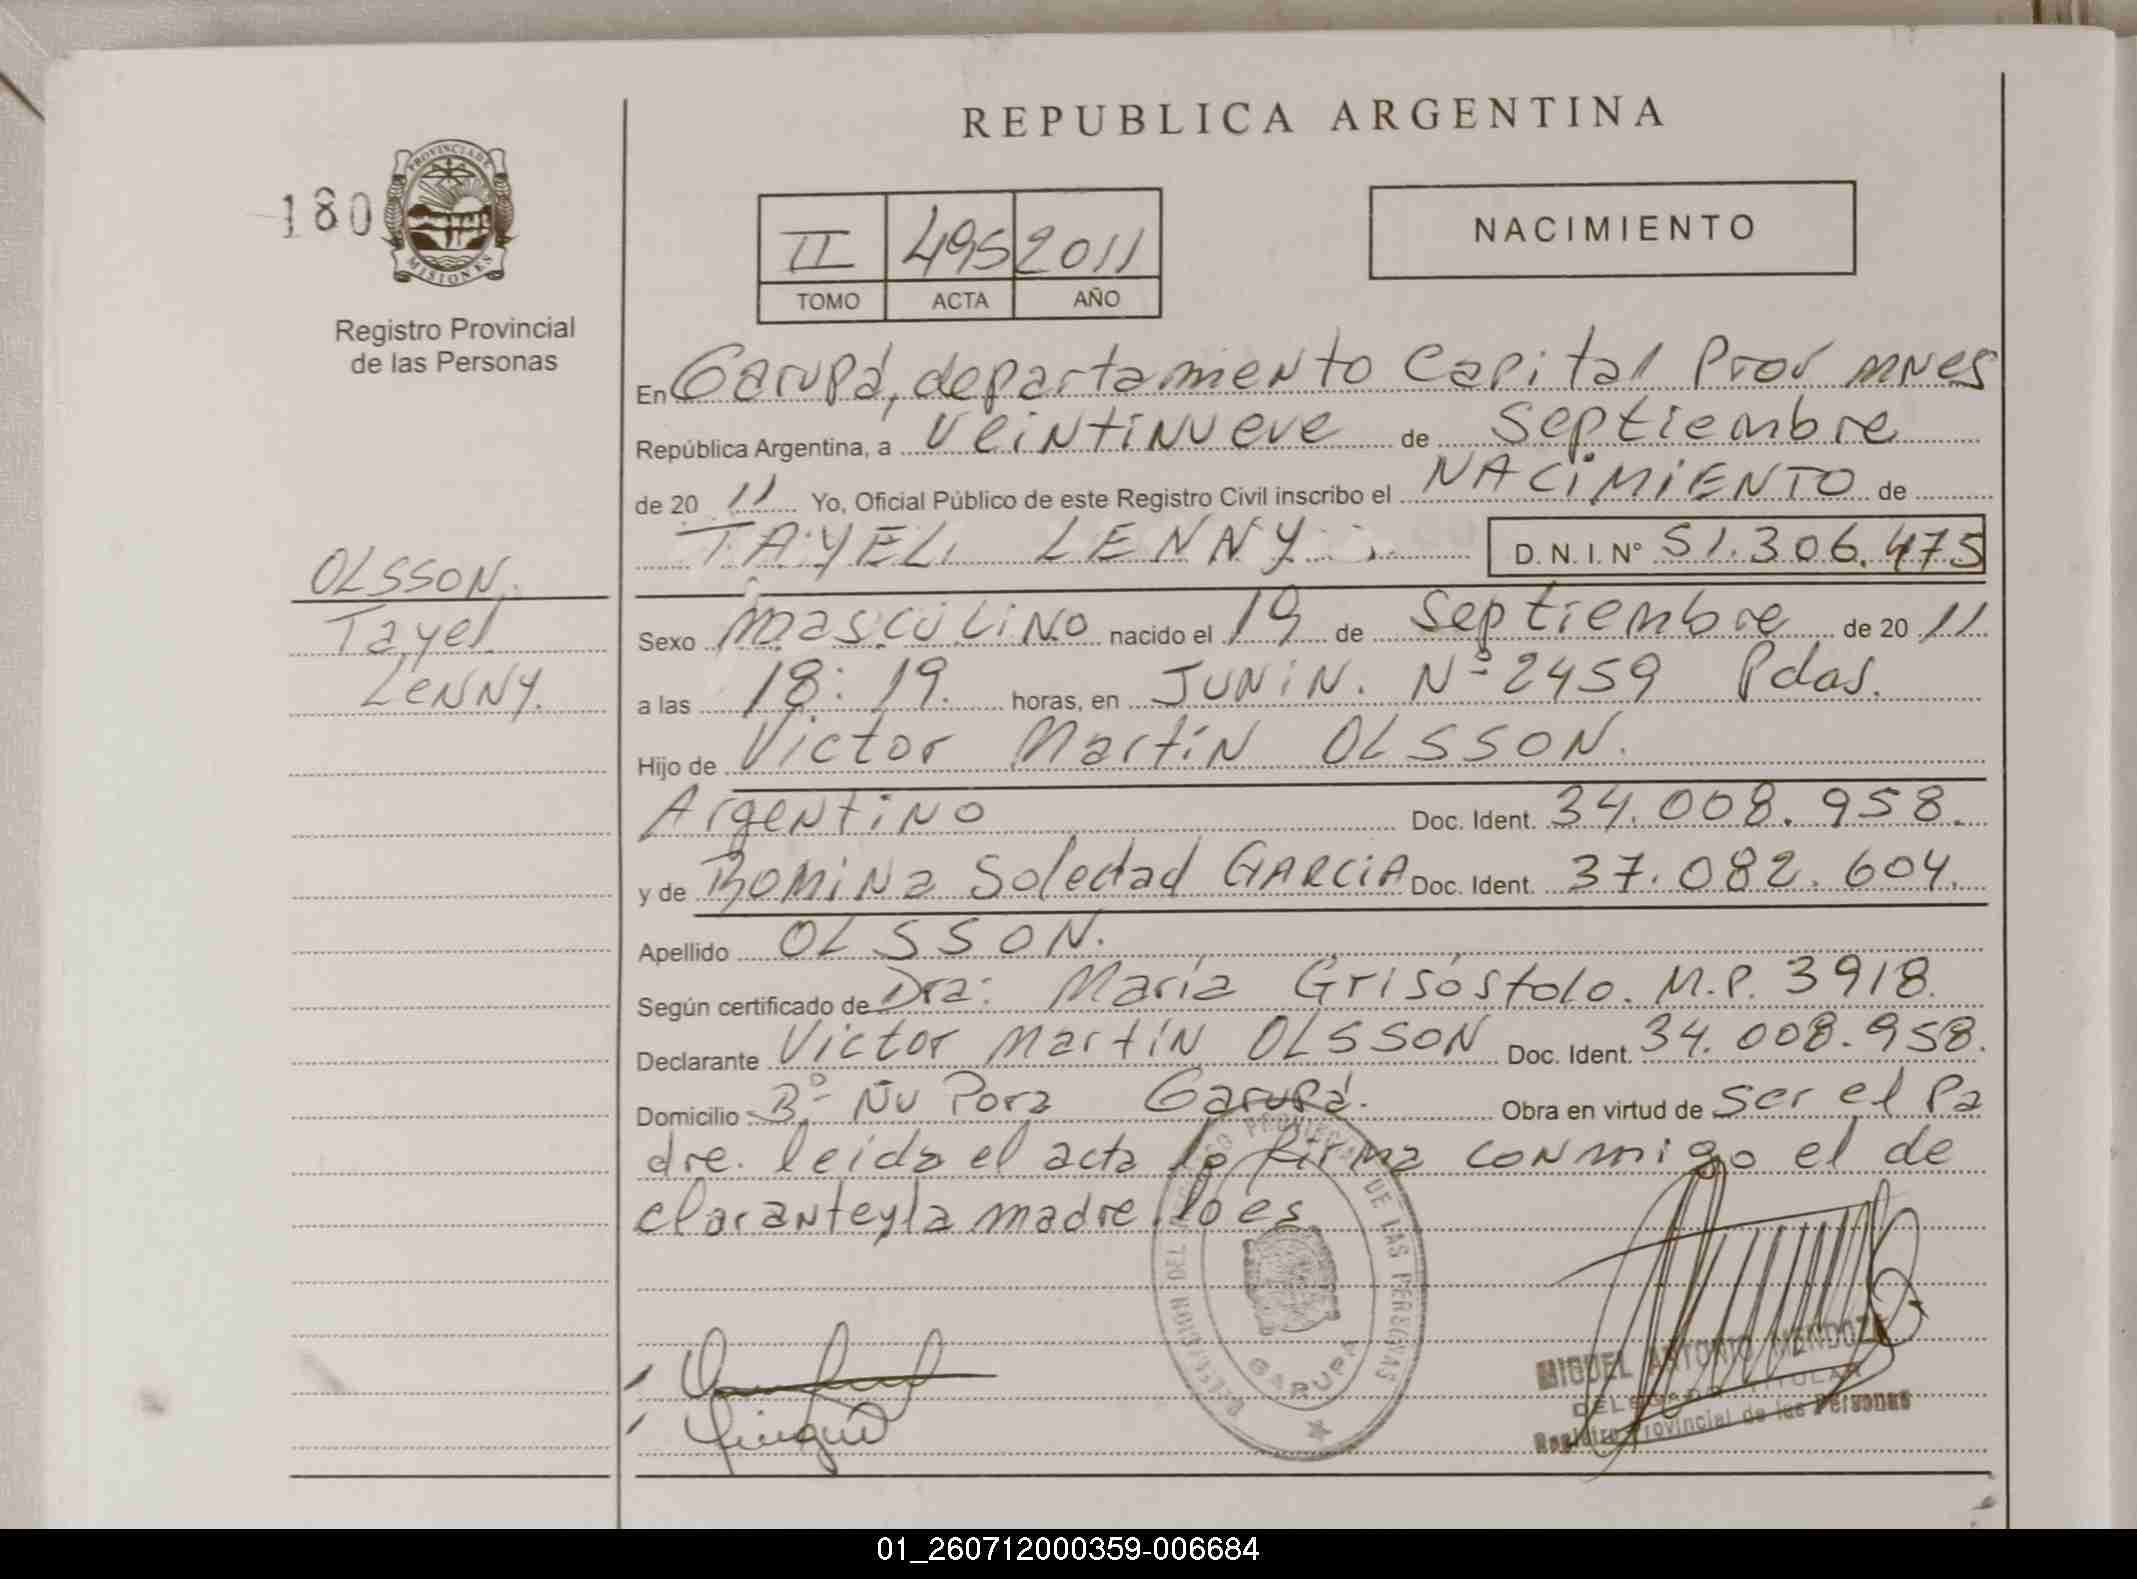 REPUBLICA ARGENTINA
180
PROVINCIA DE
MISIONES
Registro Provincial
de las Personas
II 495 2011
TOMO ACTA AÑO
NACIMIENTO
En Garupá, departamento Capital Prov mnes
República Argentina, a veintinueve de septiembre
de 2011 Yo, Oficial Público de este Registro Civil inscribo el NACIMIENTO de
TAYEL LENNY D. N. I. N° 51.306.475
OLSSON.
Tayel
Lenny.
Sexo masculino nacido el 19 de septiembre de 2011
a las 18:19. horas, en JUNIN. Nº 2459 Pdas.
Hijo de Victor Martín OLSSON.
Argentino Doc. Ident. 34.008.958.
y de Romina Soledad GARCIA Doc. Ident. 37.082.604.
Apellido OLSSON.
Según certificado de Dra: María Grisóstolo. M.P. 3918.
Declarante Victor Martín OLSSON Doc. Ident. 34.008.958.
Domicilio Bº Ñu Pora Garupá. Obra en virtud de ser el pa
dre. leida el acta lo firma conmigo el de
claranteyla madre lo es
DELEGACION DEL REGISTRO PROVINCIAL DE LAS PERSONAS
GARUPA
MIGUEL ANTONIO MENDOZA
DELEGADO TITULAR
Registro Provincial de las Personas
01_260712000359-006684